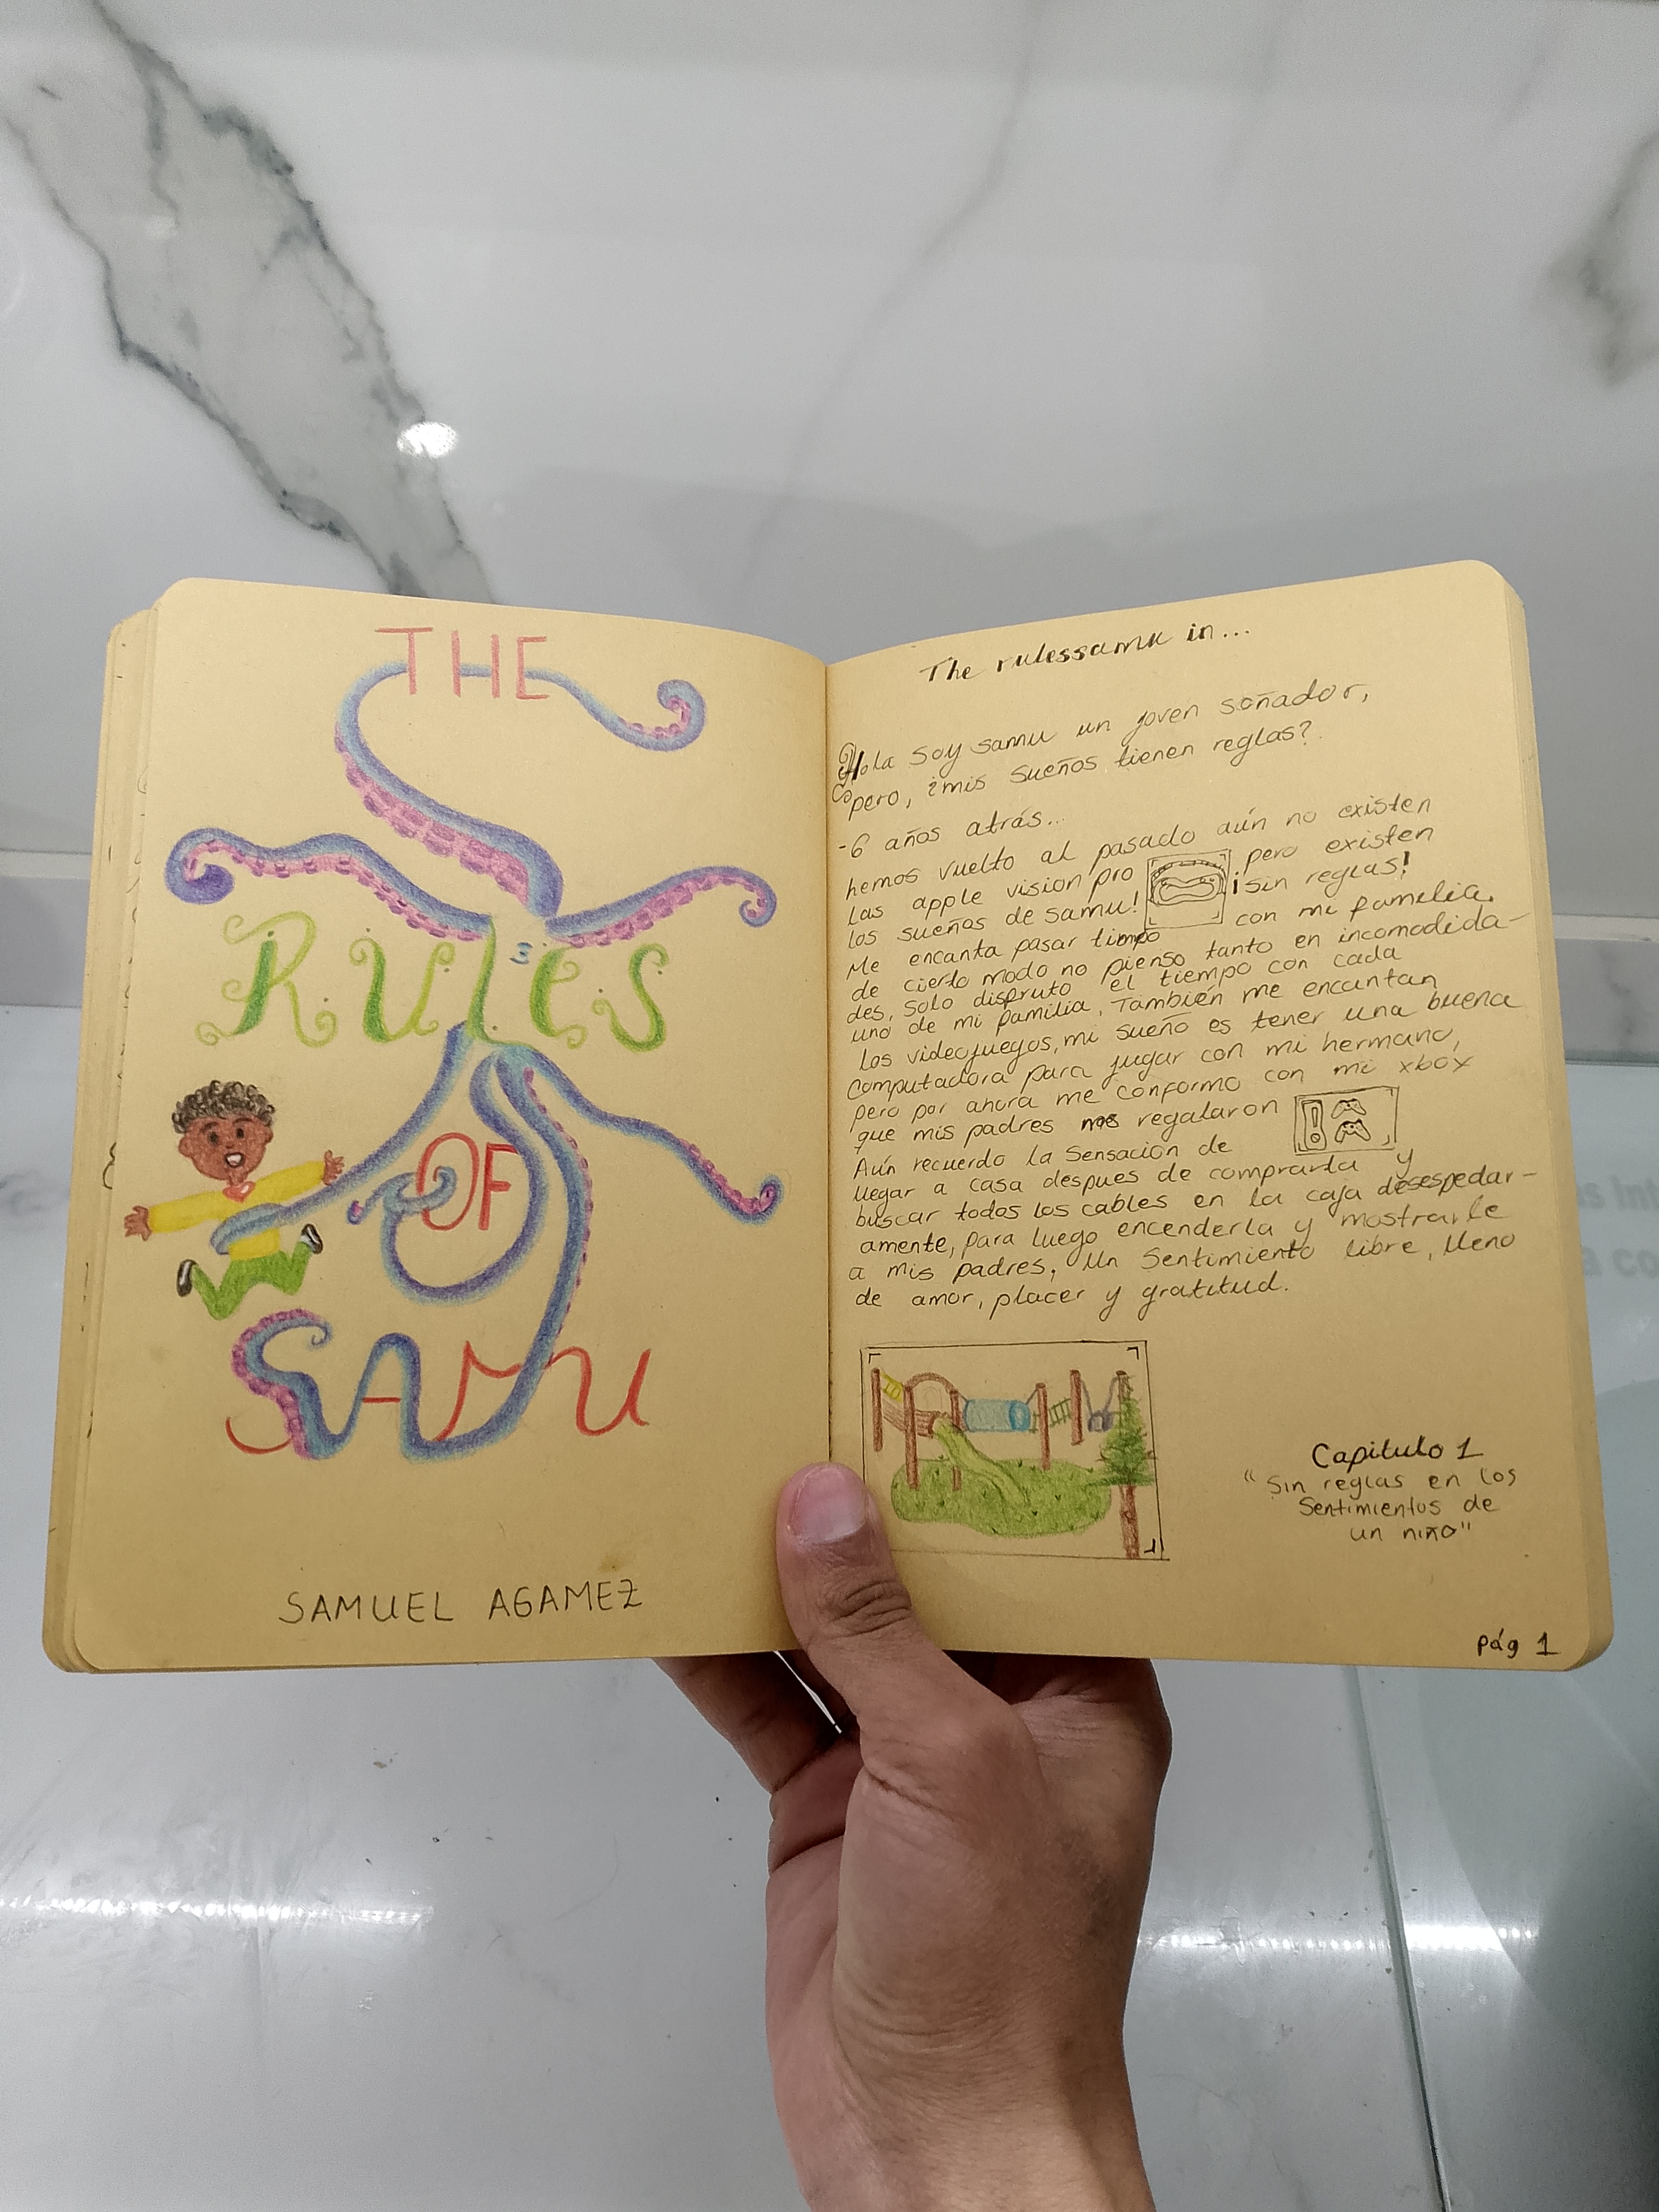 THE
RULES
OF
SAMU
SAMUEL AGAMEZ
The rulessamu in...
Hola soy samu un joven soñador,
pero, ¿mis sueños tienen reglas?
-6 años atrás...
hemos vuelto al pasado aún no existen
las apple vision pro pero existen
los sueños de samu! ¡sin reglas!
Me encanta pasar tiempo con mi familia.
de cierto modo no pienso tanto en incomodida-
des, solo disfruto el tiempo con cada
uno de mi familia, También me encantan
los videojuegos, mi sueño es tener una buena
computadora para jugar con mi hermano,
pero por ahora me conformo con mi xbox
que mis padres nos regalaron
Aún recuerdo la sensación de
llegar a casa despues de comprarla y
buscar todos los cables en la caja desespedar-
amente, para luego encenderla y mostrarle
a mis padres, Un sentimiento libre, lleno
de amor, placer y gratitud.
Capitulo 1
"Sin reglas en los
Sentimientos de
un niño"
pág 1